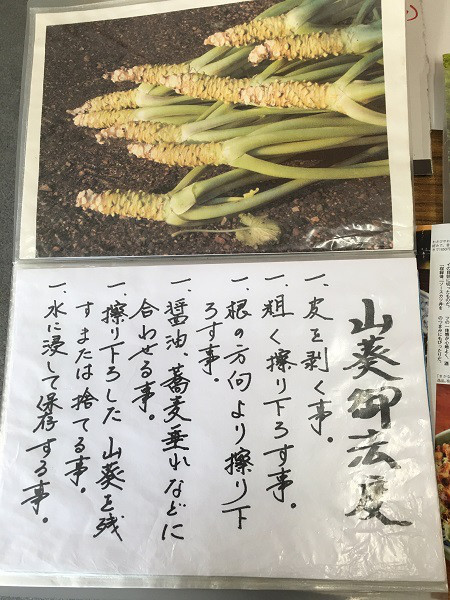 山葵御法度
一、皮を剥く事。
一、粗く擦り下ろす事。
一、根の方向より擦り下
ろす事。
一、醤油、蕎麦垂れなどに
合わせる事。
一、擦り下ろした山葵を残
すまたは捨てる事。
一、水に浸して保存する事。